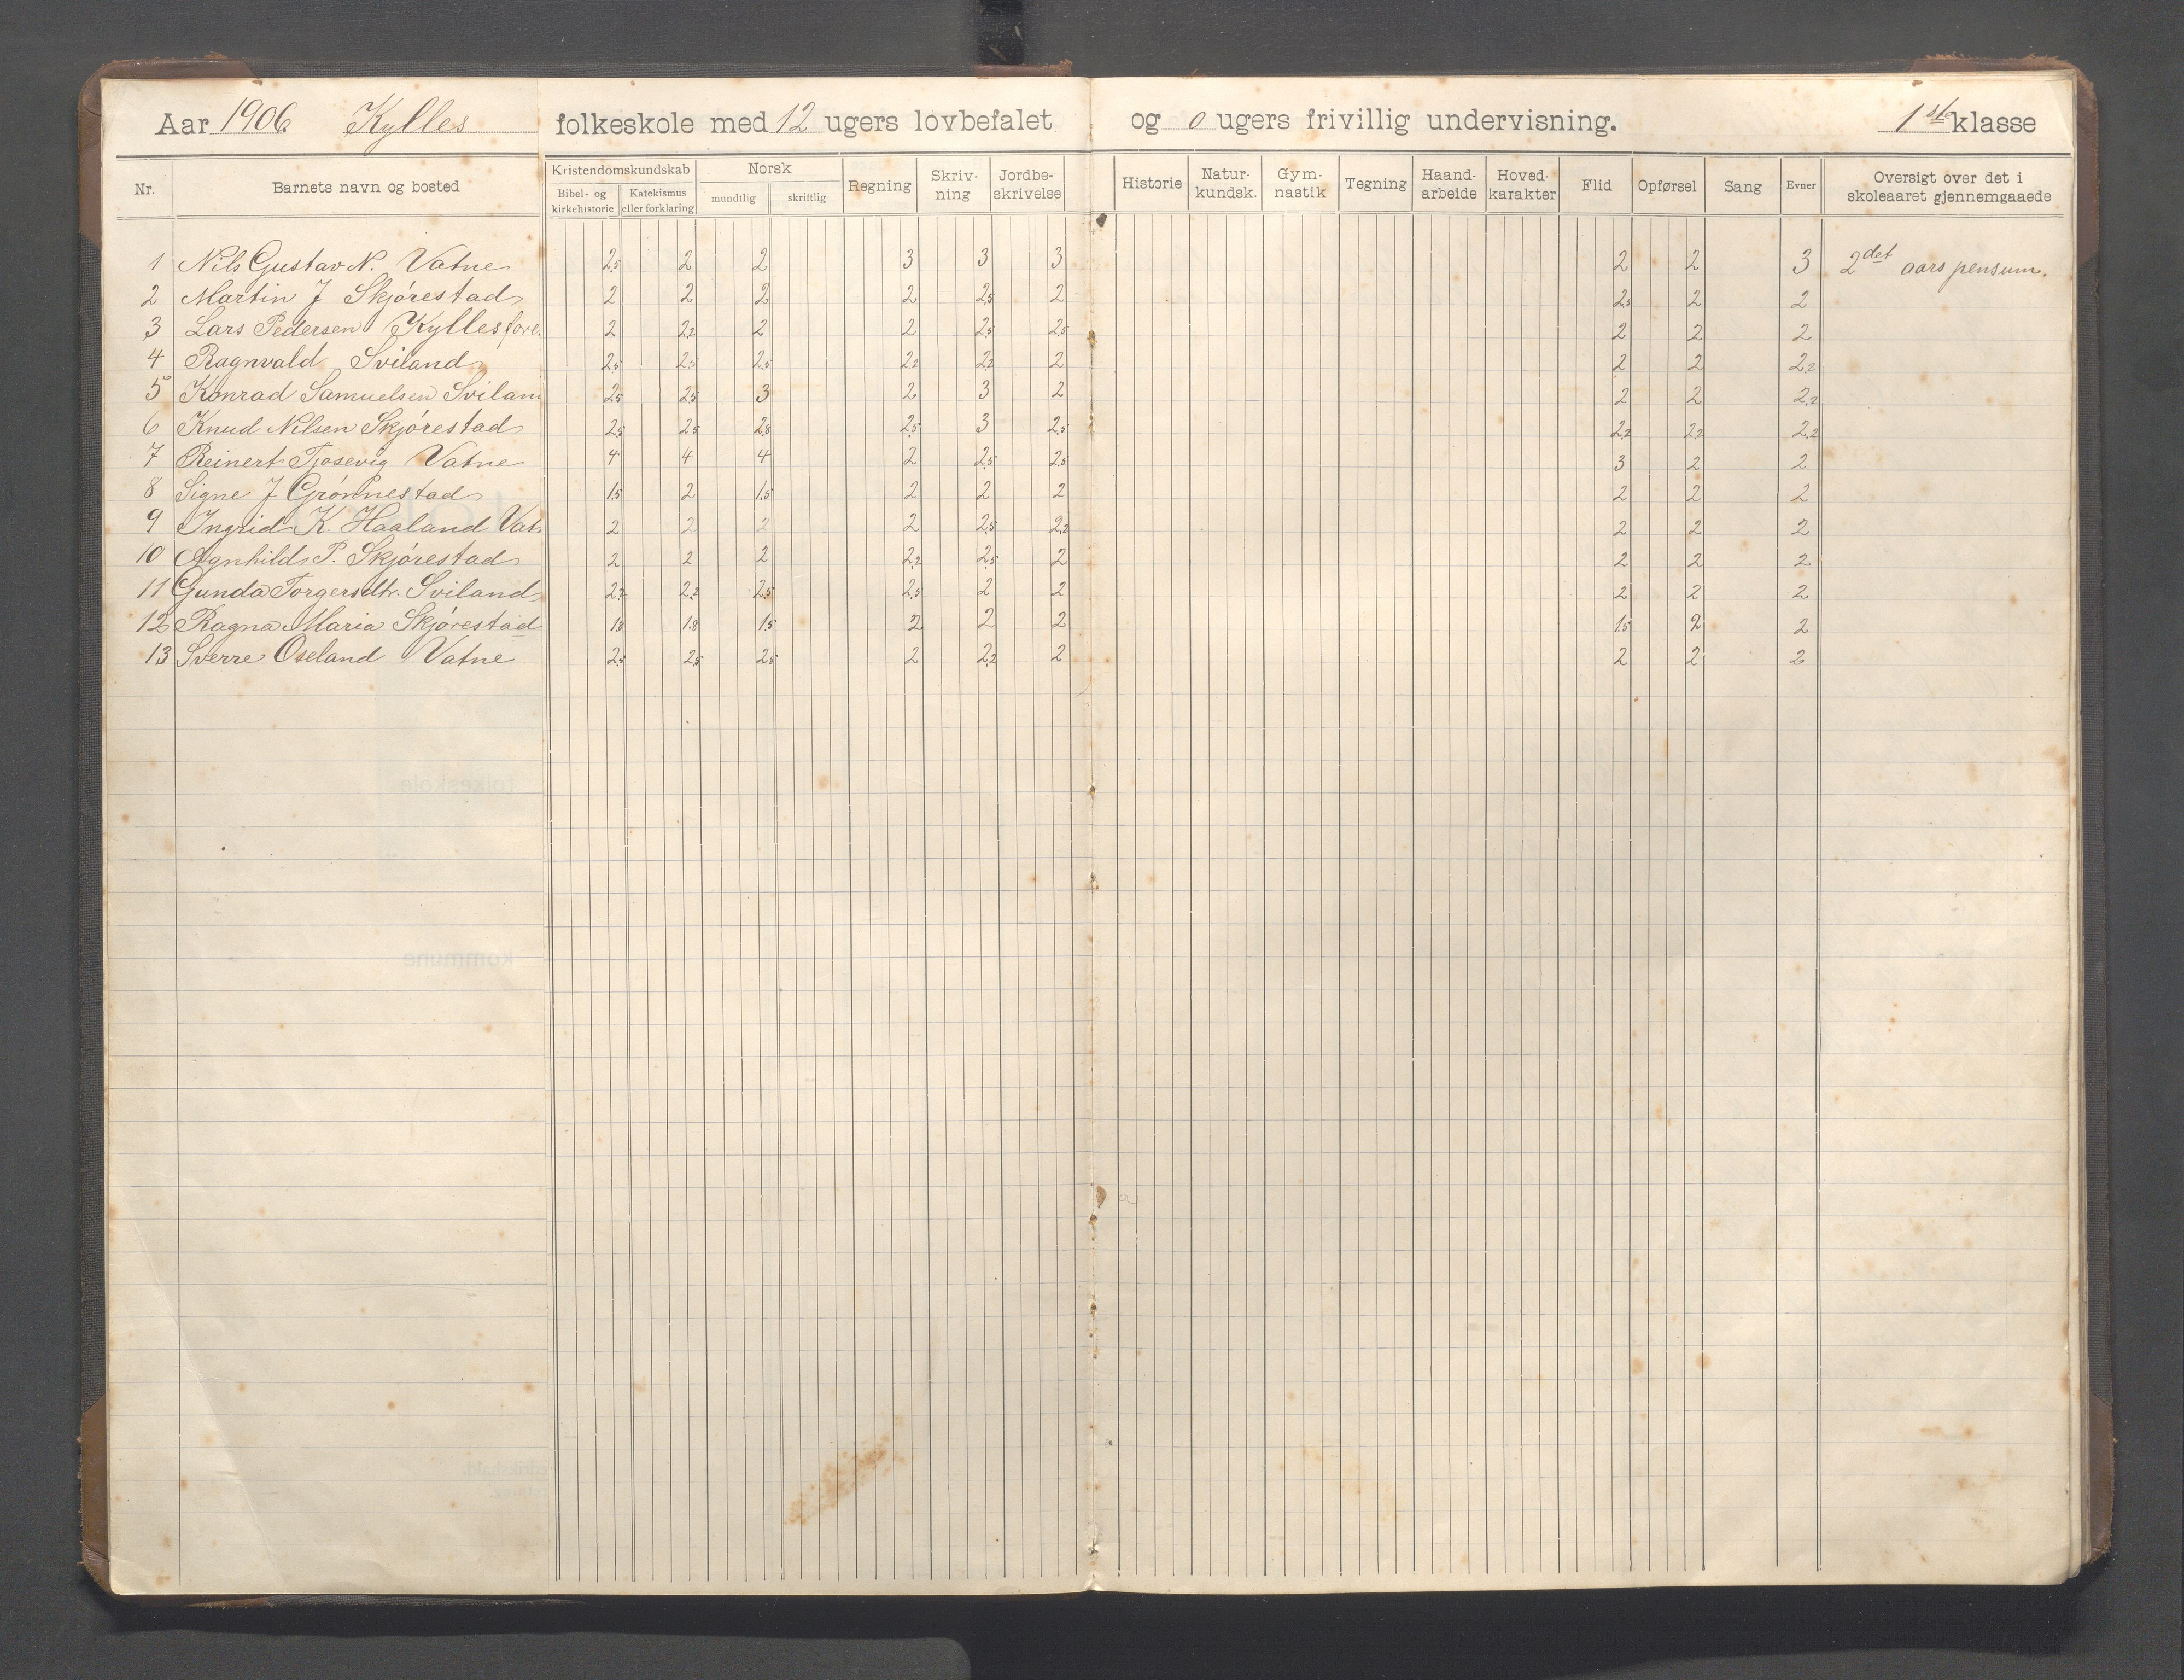 Aar 1906 Kylles folkeskole med 12 ugers lovbefalet og 0 ugers frivillig undervisning. 1ste klasse
Nr. Barnets navn og bosted Kristendomskundskab Bibel- og kirkehistorie Katekismus eller forklaring Norsk mundtlig skriftlig Regning Skriv-ning Jordbe-skrivelse Historie Natur-kundsk. Gym-nastik Tegning Haand-arbeide Hoved-karakter Flid Opførsel Sang Evner Oversigt over det i skoleaaret gjennemgaaede
1 Nils Gustav N. Vatne 2,5 2 2 3 3 3 2 2 3 2det aars pensum.
2 Martin J Skjørestad 2 2 2 2 2,5 2 2,5 2 2
3 Lars Pedersen Kyllesfore. 2 2,2 2 2 2,5 2,5 2 2 2
4 Ragnvald Sviland 2,5 2,5 2,5 2,2 2,2 2 2 2 2,2
5 Konrad Samuelsen Svilan 2,5 2,5 3 2 3 2 2 2 2,2
6 Knud Nilsen Skjørestad 2,5 2,5 2,8 2,5 3 2,5 2,2 2,2 2,2
7 Reinert Tjosevig Vatne 4 4 4 2 2,5 2,5 3 2 2
8 Signe J Grønnestad 1,5 2 1,5 2 2 2 2 2 2
9 Ingrid K. Haaland Vat. 2 2 2 2 2,5 2,2 2 2 2
10 Agnhild P. Skjørestad 2 2 2 2,2 2,5 2 2 2 2
11 Gunda Torgersdtr. Sviland 2,2 2,2 2,5 2,5 2 2 2 2 2
12 Ragna Maria Skjørestad 1,8 1,8 1,5 2 2 2 1,5 2 2
13 Sverre Oseland Vatne 2,5 2,5 2,5 2 2,2 2 2 2 2